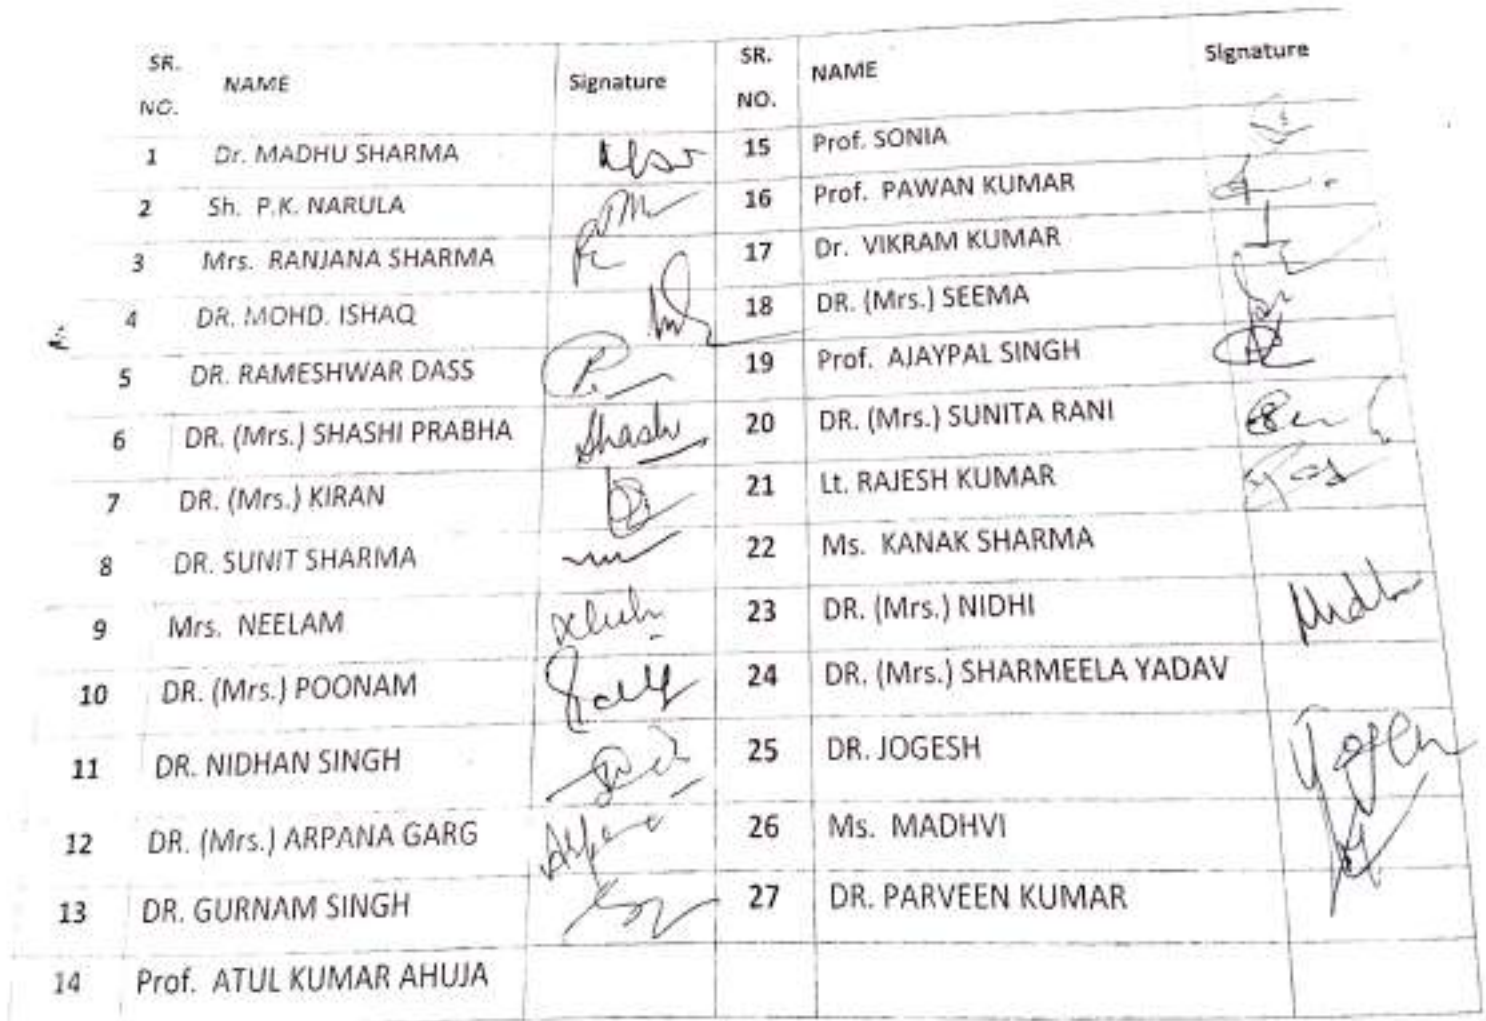 SR. NO. NAME Signature SR. NO. NAME Signature
1 Dr. MADHU SHARMA 15 Prof. SONIA
2 Sh. P.K. NARULA 16 Prof. PAWAN KUMAR
3 Mrs. RANJANA SHARMA 17 Dr. VIKRAM KUMAR
4 DR. MOHD. ISHAQ 18 DR. (Mrs.) SEEMA
5 DR. RAMESHWAR DASS 19 Prof. AJAYPAL SINGH
6 DR. (Mrs.) SHASHI PRABHA Shashi 20 DR. (Mrs.) SUNITA RANI
7 DR. (Mrs.) KIRAN 21 Lt. RAJESH KUMAR
8 DR. SUNIT SHARMA 22 Ms. KANAK SHARMA
9 Mrs. NEELAM 23 DR. (Mrs.) NIDHI Nidhi
10 DR. (Mrs.) POONAM 24 DR. (Mrs.) SHARMEELA YADAV
11 DR. NIDHAN SINGH 25 DR. JOGESH
12 DR. (Mrs.) ARPANA GARG 26 Ms. MADHVI
13 DR. GURNAM SINGH 27 DR. PARVEEN KUMAR
14 Prof. ATUL KUMAR AHUJA